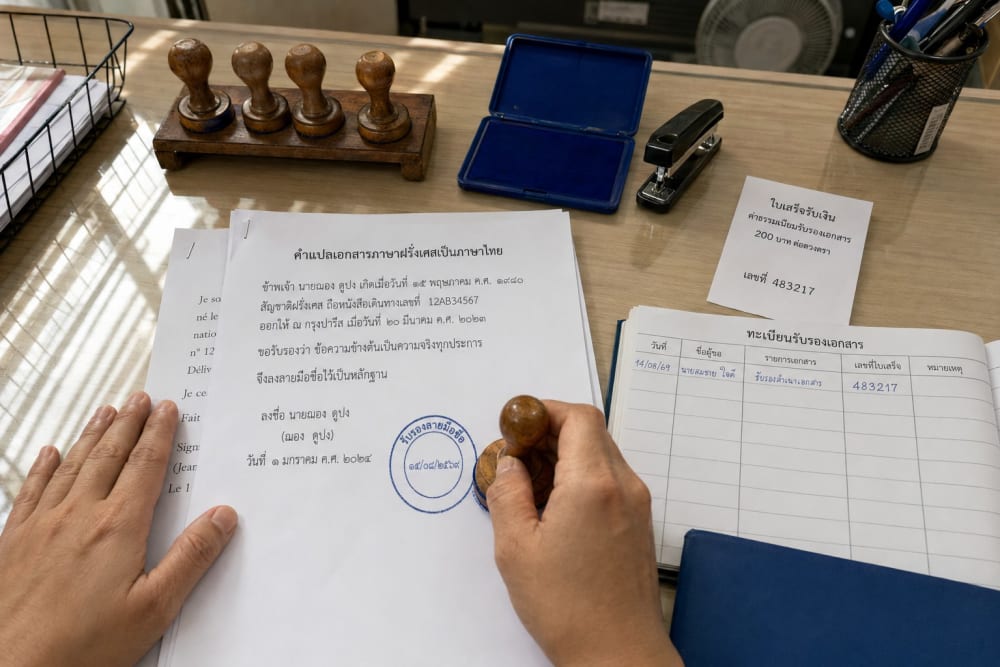 คำแปลเอกสารภาษาฝรั่งเศสเป็นภาษาไทย
ข้าพเจ้า นายฌอง ดูปง เกิดเมื่อวันที่ ๑๕ พฤษภาคม ค.ศ. ๑๙๘๐
สัญชาติฝรั่งเศส ถือหนังสือเดินทางเลขที่ 12AB34567
ออกให้ ณ กรุงปารีส เมื่อวันที่ ๒๐ มีนาคม ค.ศ. ๒๐๒๓
ขอรับรองว่า ข้อความข้างต้นเป็นความจริงทุกประการ
จึงลงลายมือชื่อไว้เป็นหลักฐาน
ลงชื่อ นายฌอง ดูปง
(ฌอง ดูปง)
วันที่ ๑ มกราคม ค.ศ. ๒๐๒๔
รับรองลายมือชื่อ
๑๕/๐๘/๒๕๖๙
Je so
né le
natio
n° 12
Déliv
Je ce
Fait
Sign
(Jean
Le 1
ใบเสร็จรับเงิน
ค่าธรรมเนียมรับรองเอกสาร
200 บาท ต่อดวงตรา
เลขที่ 483217
ทะเบียนรับรองเอกสาร
วันที่ ชื่อผู้ขอ รายการเอกสาร เลขที่ใบเสร็จ หมายเหตุ
14/08/69 นายสมชาย ใจดี รับรองสำเนาเอกสาร 483217